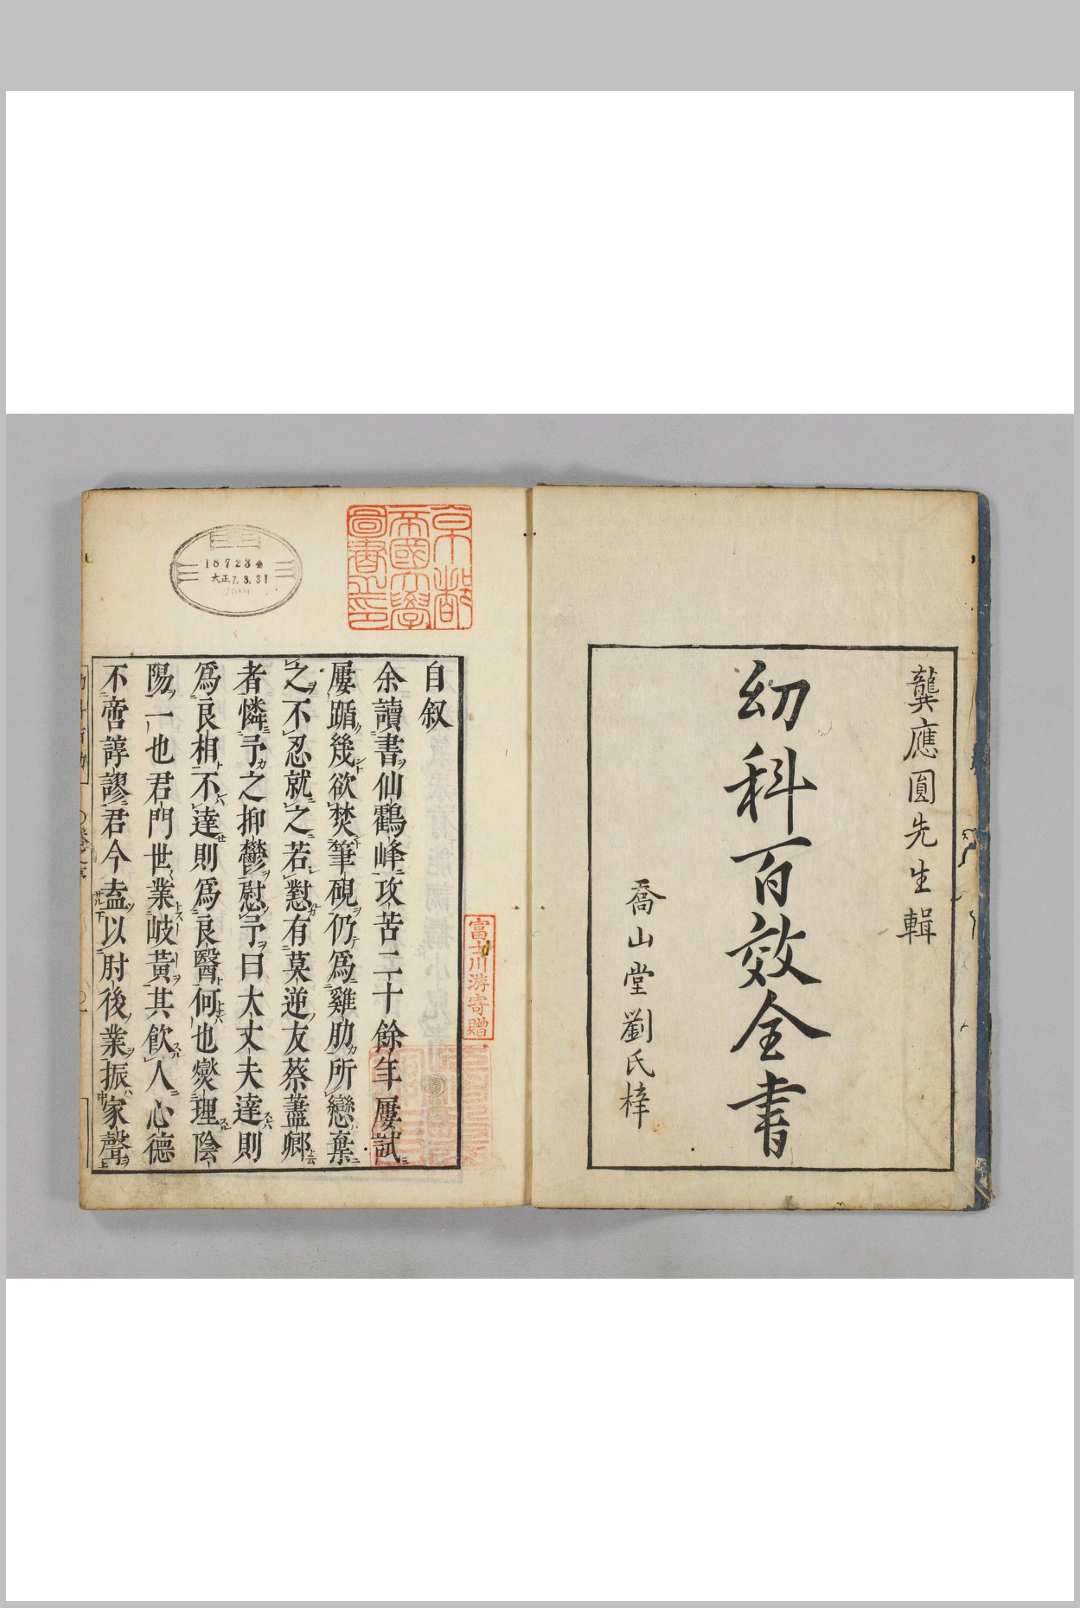 龔應圓先生輯
幼科百效全書
喬山堂劉氏梓
京都
帝國大學
圖書之印
187234
大正7.3.31
富士川游寄贈
自叙
余讀書仙鸛峰攻苦二十餘年屢試
屢躓幾欲焚筆硯仍爲雞肋所戀棄
之不忍就之若懟有莫逆友蔡藎卿
者憐予之抑鬱慰予曰大丈夫達則
爲良相不達則爲良醫何也燮理陰
陽一也君門世業岐黃其飲人心德
不啻諄謬君今盍以肘後業振家聲